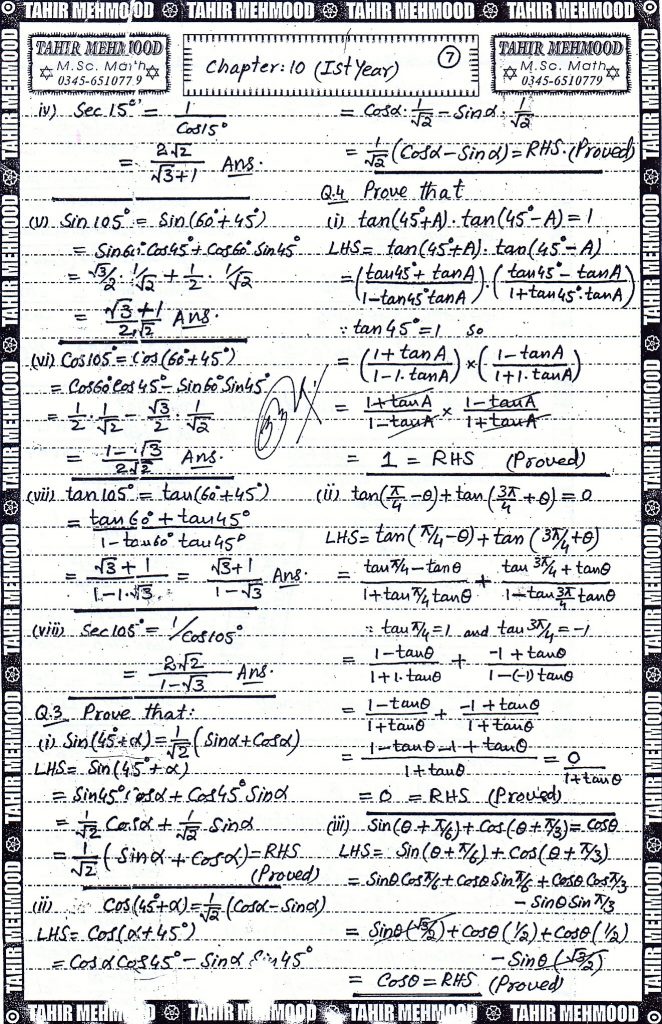 TAHIR MEHMOOD TAHIR MEHMOOD TAHIR MEHMOOD TAHIR MEHMOOD
TAHIR MEHMOOD
M.Sc. Math
0345-6510779
Chapter: 10 (Ist Year)
7
TAHIR MEHMOOD
M.Sc. Math
0345-6510779
iv) Sec 15° = 1/Cos15°
= 2√2/(√3+1) Ans.
(v) Sin 105° = Sin(60°+45°)
= Sin60° Cos45° + Cos60° Sin45°
= √3/2 · 1/√2 + 1/2 · 1/√2
= (√3+1)/2√2 Ans.
(vi) Cos105° = Cos(60°+45°)
= Cos60° Cos45° - Sin60° Sin45°
= 1/2 · 1/√2 - √3/2 · 1/√2
= (1-√3)/2√2 Ans.
(vii) tan105° = tan(60°+45°)
= (tan60° + tan45°)/(1-tan60° tan45°)
= (√3+1)/(1-1·√3) = (√3+1)/(1-√3) Ans.
(viii) Sec105° = 1/Cos105°
= 2√2/(1-√3) Ans.
Q.3 Prove that:
(i) Sin(45°+α) = 1/√2 (Sinα+Cosα)
LHS = Sin(45°+α)
= Sin45° Cosα + Cos45° Sinα
= 1/√2 Cosα + 1/√2 Sinα
= 1/√2 (Sinα + Cosα) = RHS
(Proved)
(ii) Cos(45°+α) = 1/√2 (Cosα-Sinα)
LHS = Cos(α+45°)
= Cosα Cos45° - Sinα Sin45°
= Cosα · 1/√2 - Sinα · 1/√2
= 1/√2 (Cosα - Sinα) = RHS. (Proved)
Q.4 Prove that
(i) tan(45°+A) · tan(45°-A) = 1
LHS = tan(45°+A) · tan(45°-A)
= ((tan45°+tanA)/(1-tan45° tanA)) · ((tan45°-tanA)/(1+tan45°·tanA))
∵ tan45°=1 So
= ((1+tanA)/(1-1·tanA)) × ((1-tanA)/(1+1·tanA))
= (1+tanA)/(1-tanA) × (1-tanA)/(1+tanA)
= 1 = RHS (Proved)
(ii) tan(π/4 - θ) + tan(3π/4 + θ) = 0
LHS = tan(π/4-θ) + tan(3π/4+θ)
= (tanπ/4 - tanθ)/(1+tanπ/4 tanθ) + (tan3π/4 + tanθ)/(1-tan3π/4 tanθ)
∵ tanπ/4=1 and tan3π/4=-1
= (1-tanθ)/(1+1·tanθ) + (-1+tanθ)/(1-(-1)tanθ)
= (1-tanθ)/(1+tanθ) + (-1+tanθ)/(1+tanθ)
= (1-tanθ-1+tanθ)/(1+tanθ) = 0/(1+tanθ)
= 0 = RHS (Proved)
(iii) Sin(θ+π/6) + Cos(θ+π/3) = Cosθ
LHS = Sin(θ+π/6) + Cos(θ+π/3)
= Sinθ Cosπ/6 + Cosθ Sinπ/6 + Cosθ Cosπ/3
- Sinθ Sinπ/3
= Sinθ(√3/2) + Cosθ(1/2) + Cosθ(1/2)
- Sinθ(√3/2)
= Cosθ = RHS (Proved)
TAHIR MEHMOOD TAHIR MEHMOOD TAHIR MEHMOOD TAHIR MEHMOOD
TAHIR MEHMOOD TAHIR MEHMOOD TAHIR MEHMOOD TAHIR MEHMOOD TAHIR MEHMOOD TAHIR MEHMOOD
TAHIR MEHMOOD TAHIR MEHMOOD TAHIR MEHMOOD TAHIR MEHMOOD TAHIR MEHMOOD TAHIR MEHMOOD